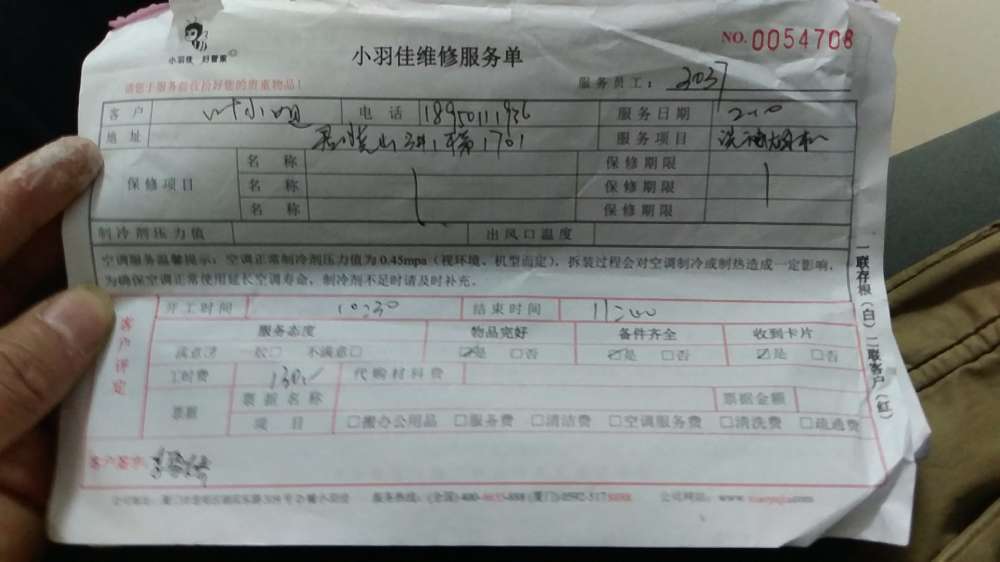 小羽佳 好管家
小羽佳维修服务单
NO.0054708
请您于服务前收拾好您的贵重物品！
服务员工：2037
客户 叶小姐 电话 18950111936 服务日期
地址 服务项目
保修项目 名称 保修期限
名称 保修期限
名称 保修期限
制冷剂压力值 出风口温度
空调服务温馨提示：空调正常制冷剂压力值为0.45mpa（视环境、机型而定），拆装过程会对空调制冷或制热造成一定影响，
为确保空调正常使用延长空调寿命，制冷剂不足时请及时补充。
一联存根（白）二联客户（红）
客户评定
开工时间 10:30 结束时间 11:00
服务态度 物品完好 备件齐全 收到卡片
满意☑ 一般□ 不满意□ ☑是 □否 ☑是 □否 ☑是 □否
工时费 130 代购材料费
票据 票据名称 票据金额
项目 □搬办公用品 □服务费 □清洁费 □空调服务费 □清洗费 □疏通费
客户签字：
公司地址： 服务热线：(全国)400- -888 (厦门)0592-517 公司网站：www.